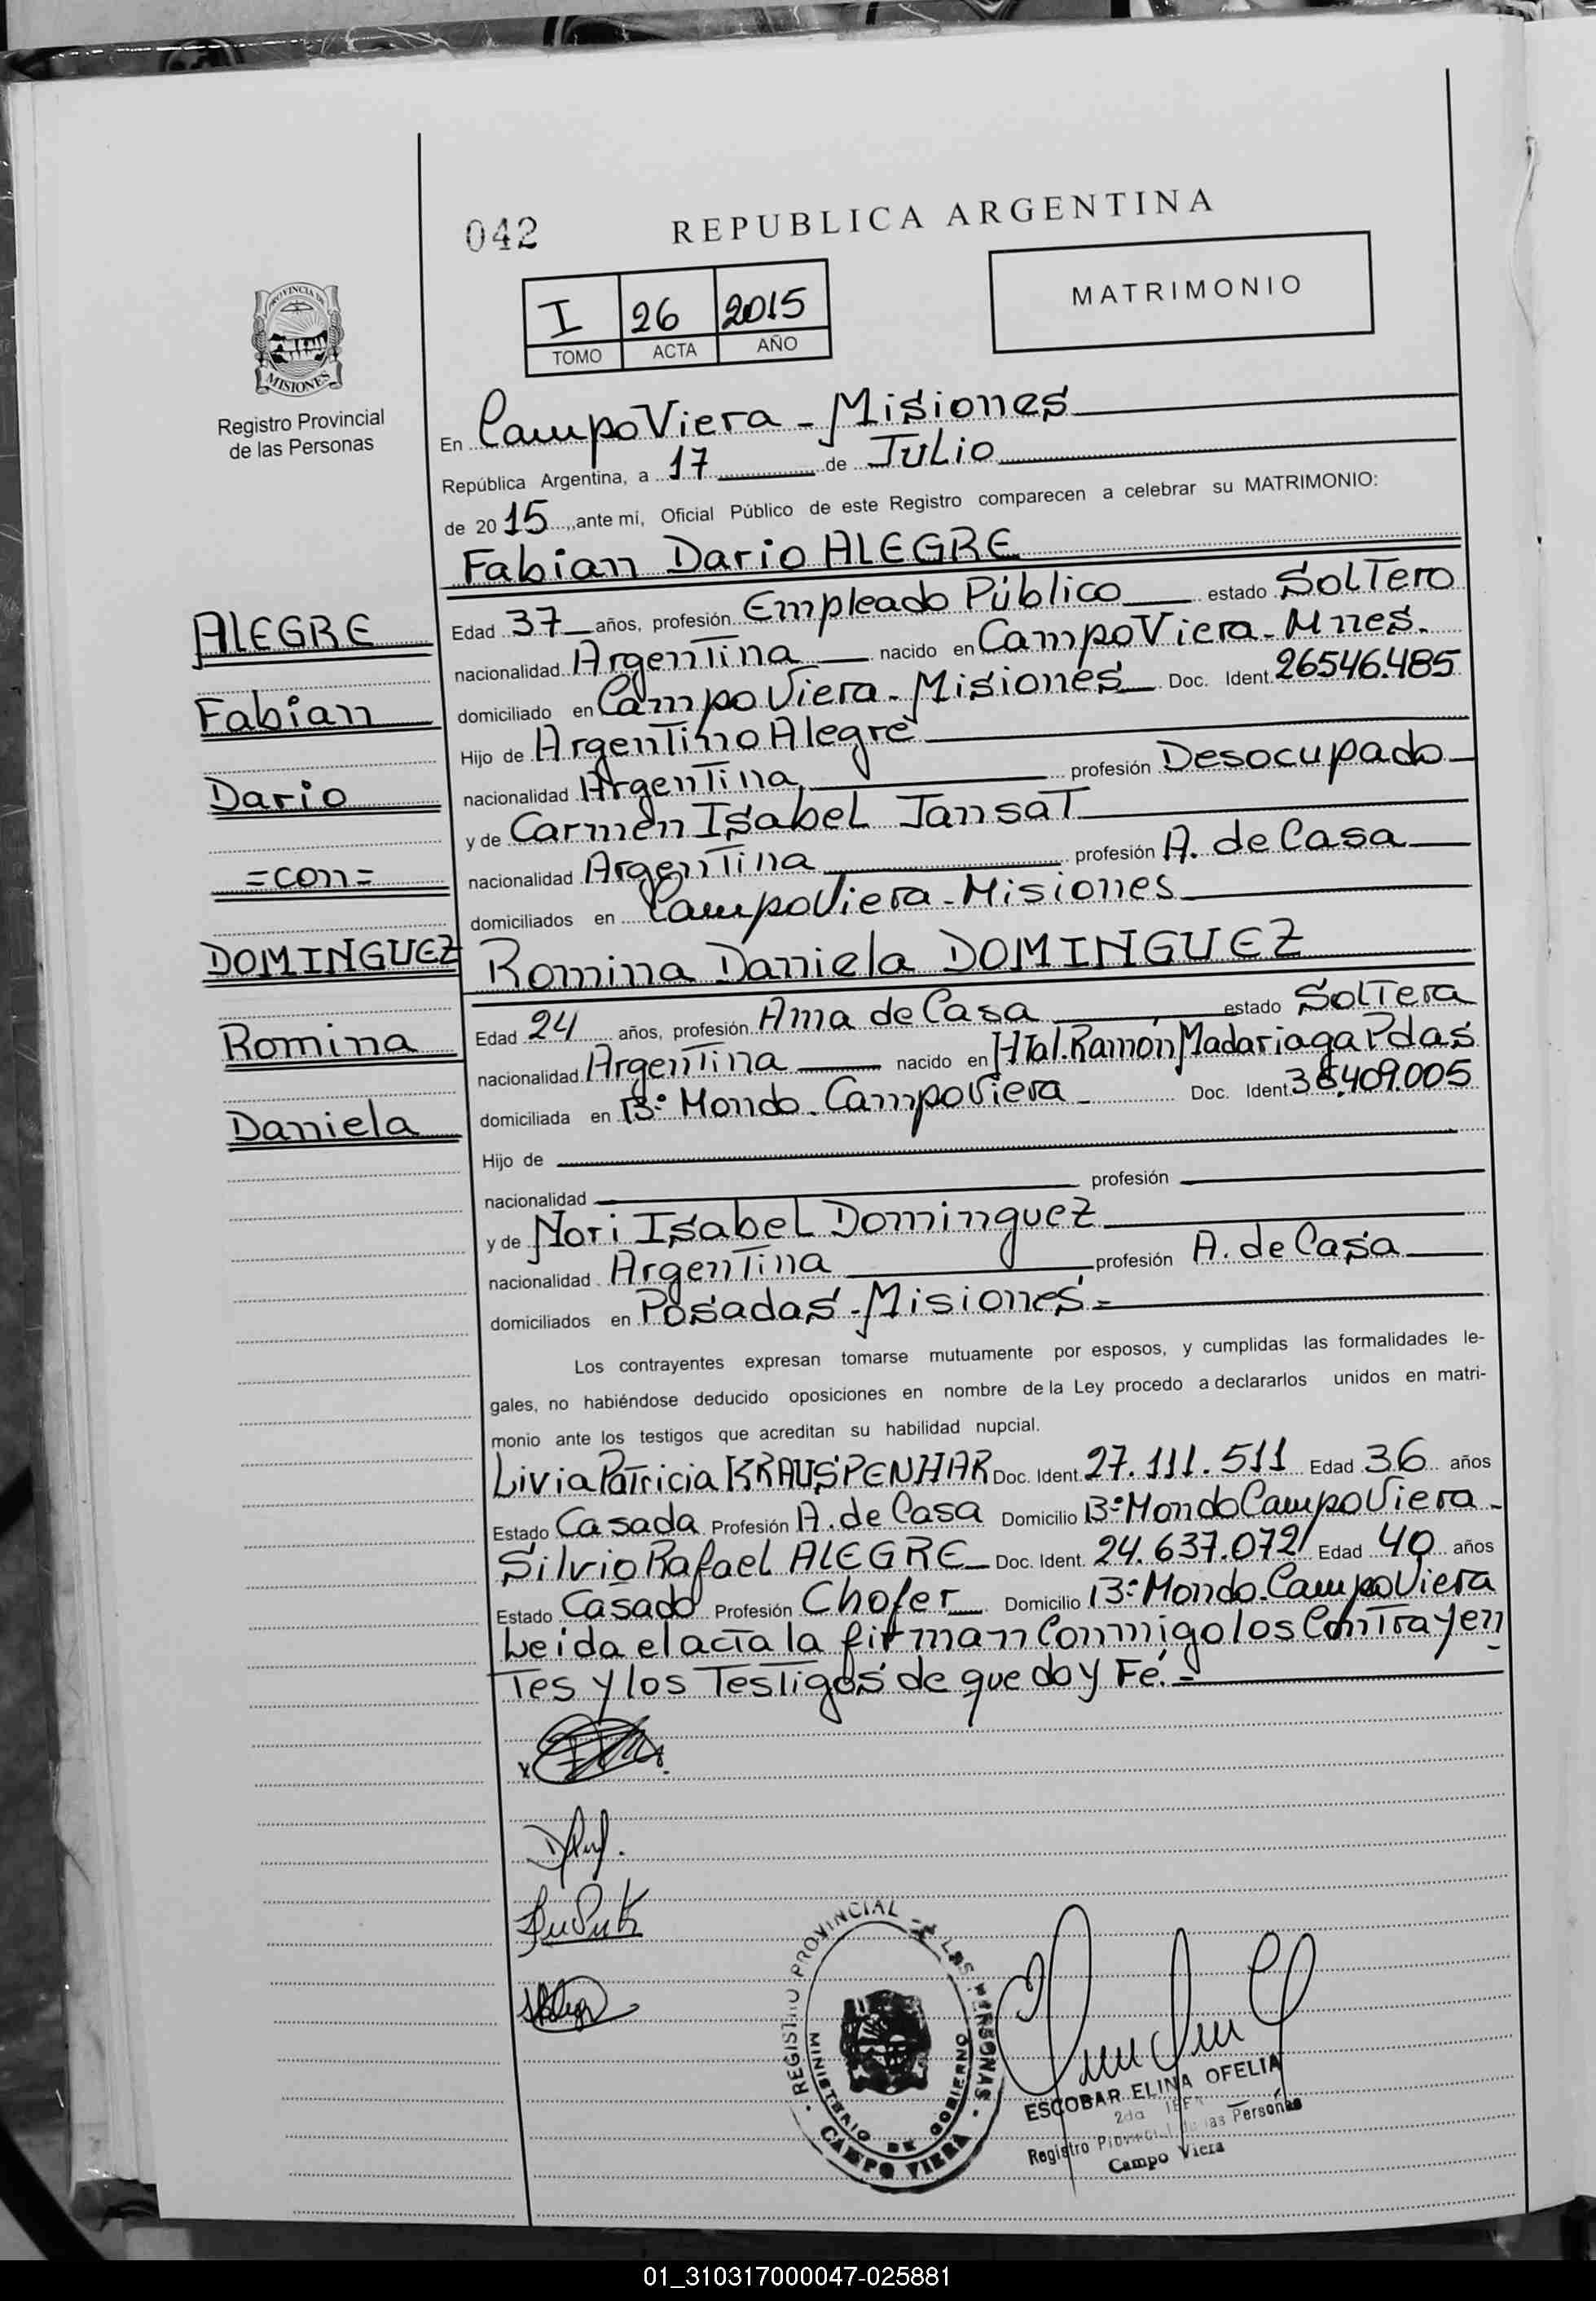 042
REPUBLICA ARGENTINA
I 26 2015
TOMO ACTA AÑO
MATRIMONIO
PROVINCIA DE
MISIONES
Registro Provincial
de las Personas
En CampoViera - Misiones
República Argentina, a 17 de Julio
de 2015, ante mí, Oficial Público de este Registro comparecen a celebrar su MATRIMONIO:
Fabian Dario ALEGRE
Edad 37 años, profesión Empleado Público estado Soltero
nacionalidad Argentina nacido en Campo Viera - Mnes.
domiciliado en Campo Viera - Misiones Doc. Ident. 26546.485
Hijo de Argentino Alegre
nacionalidad Argentina profesión Desocupado
y de Carmen Isabel Jansat
nacionalidad Argentina profesión A. de Casa
domiciliados en CampoViera - Misiones
Romina Daniela DOMINGUEZ
Edad 24 años, profesión Ama de Casa estado Soltera
nacionalidad Argentina nacido en Htal. Ramón Madariaga Pdas
domiciliada en B° Mondo - CampoViera - Doc. Ident. 409.005
Hijo de
nacionalidad profesión
y de Nori Isabel Dominguez
nacionalidad Argentina profesión A. de Casa
domiciliados en Posadas - Misiones =
Los contrayentes expresan tomarse mutuamente por esposos, y cumplidas las formalidades le-
gales, no habiéndose deducido oposiciones en nombre de la Ley procedo a declararlos unidos en matri-
monio ante los testigos que acreditan su habilidad nupcial.
Livia Patricia KRAUSPENHAR Doc. Ident. 27.111.511 Edad 36 años
Estado Casada Profesión A. de Casa Domicilio B° Mondo CampoViera -
Silvio Rafael ALEGRE Doc. Ident. 24.637.072 Edad 40 años
Estado Casado Profesión Chofer Domicilio B° Mondo - CampoViera
Leida el acta la firman Conmigo los Contrayen
tes y los Testigos de que doy Fé. =
ALEGRE
Fabian
Dario
=con=
DOMINGUEZ
Romina
Daniela
REGISTRO PROVINCIAL DE LAS PERSONAS
MINISTERIO DE GOBIERNO
CAMPO VIERA
ESCOBAR ELINA OFELIA
2da
Registro Provincial de las Personas
Campo Viera
01_310317000047-025881